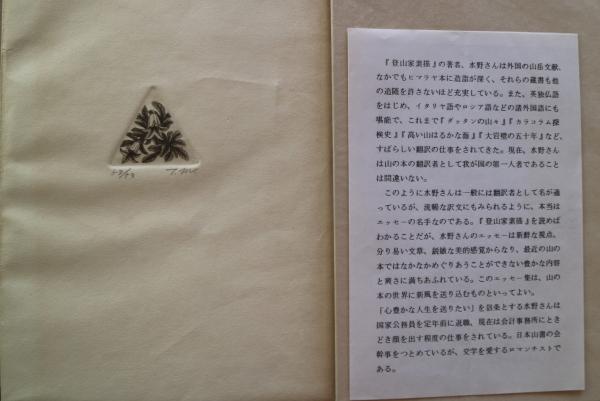 『登山家素描』の著者、水野さんは外国の山岳文献、
なかでもヒマラヤ本に造詣が深く、それらの蔵書も他
の追随を許さないほど充実している。また、英独仏語
をはじめ、イタリヤ語やロシア語などの諸外国語にも
堪能で、これまで『ダッタンの山々』『カラコラム探
検史』『高い山はるかな海』『大岩壁の五十年』など、
すばらしい翻訳の仕事をされてきた。現在、水野さん
は山の本の翻訳者として我が国の第一人者であること
は間違いない。
このように水野さんは一般には翻訳者として名が通
っているが、流暢な訳文にもみられるように、本当は
エッセーの名手なのである。『登山家素描』を読めば
わかることだが、水野さんのエッセーは新鮮な視点、
分り易い文章、鋭敏な美的感覚からなり、最近の山の
本ではなかなかめぐりあうことができない豊かな内容
と爽さに満ちあふれている。このエッセー集は、山の
本の世界に新風を送り込むものといってよい。
「心豊かな人生を送りたい」を信条とする水野さんは
国家公務員を定年前に退職、現在は会計事務所にとき
どき顔を出す程度の仕事をされている。日本山書の会
幹事をつとめているが、文学を愛するロマンチストで
ある。